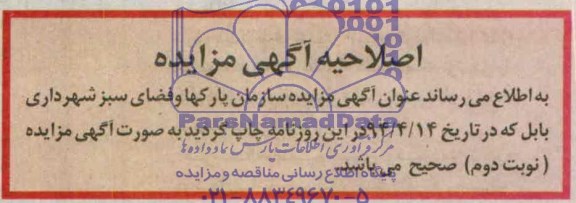 اصلاحیه آگهی مزایده
به اطلاع می رساند عنوان آگهی مزایده سازمان پارکها وفضای سبز شهرداری
بابل که در تاریخ ۹۴/۴/۱۴ در این روزنامه چاپ گردید به صورت آگهی مزایده
( نوبت دوم) صحیح می باشد.
ParsNamadData
مرکز فرآوری اطلاعات پارس نماد داده ها
پایگاه اطلاع رسانی مناقصه و مزایده
۰۲۱-۸۸۳۴۹۶۷۰-۵